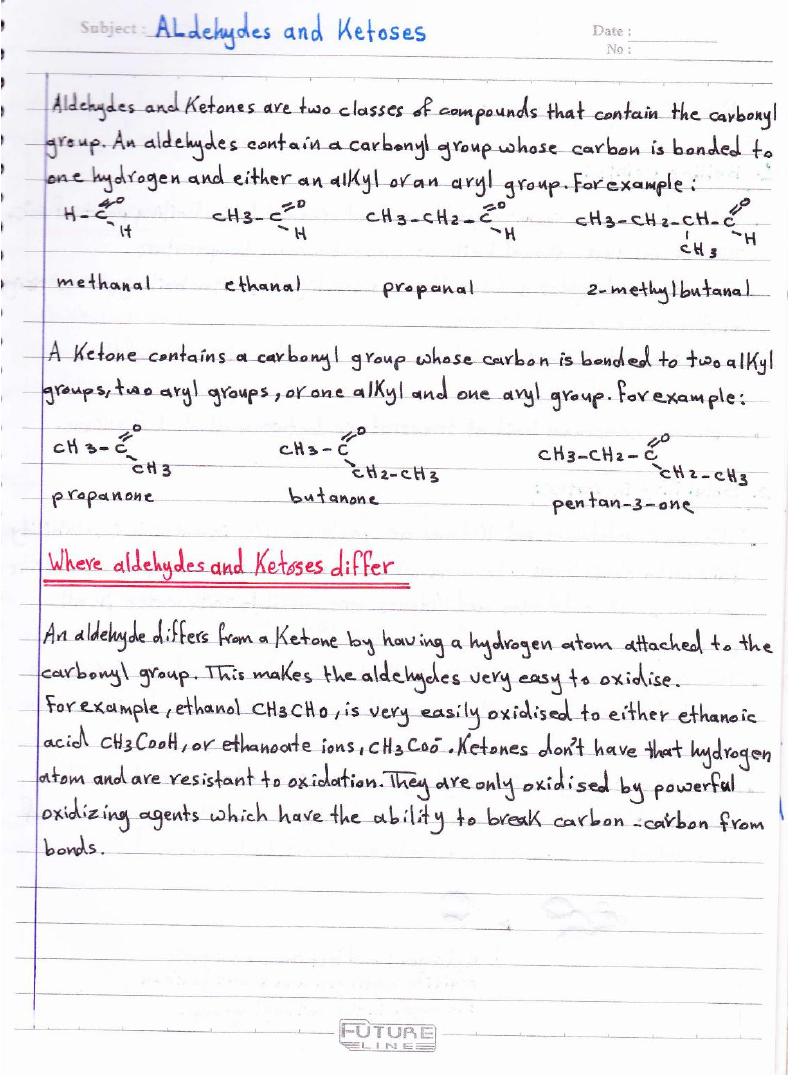 Subject : ALdehydes and Ketoses
Date :
No :
Aldehydes and Ketones are two classes of compounds that contain the carbonyl
group. An aldehydes contain a carbonyl group whose carbon is bonded to
one hydrogen and either an alkyl or an aryl group. For example :
H-C=O -H CH3-C=O -H CH3-CH2-C=O -H CH3-CH2-CH-C=O -H
CH3
methanal ethanal propanal 2-methylbutanal
A Ketone contains a carbonyl group whose carbon is bonded to two alkyl
groups, two aryl groups, or one alkyl and one aryl group. For example :
CH3-C=O CH3-C=O CH3-CH2-C=O
CH3 CH2-CH3 CH2-CH3
propanone butanone pentan-3-one
Where aldehydes and Ketoses differ
An aldehyde differs from a Ketone by having a hydrogen atom attached to the
carbonyl group. This makes the aldehydes very easy to oxidise.
For example, ethanol CH3CHO, is very easily oxidised to either ethanoic
acid CH3COOH, or ethanoate ions, CH3COO-. Ketones don't have that hydrogen
atom and are resistant to oxidation. They are only oxidised by powerful
oxidizing agents which have the ability to break carbon-carbon from
bonds.
FUTURE
LINE